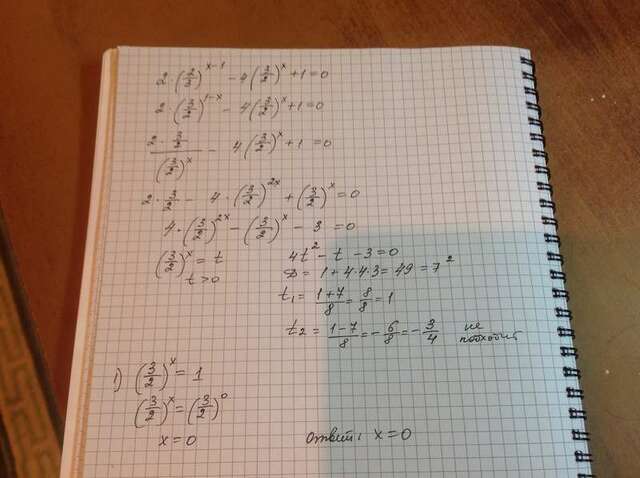 2·(2/3)^(x-1) - 4(3/2)^x + 1 = 0
2·(3/2)^(1-x) - 4(3/2)^x + 1 = 0
(2·3/2)/(3/2)^x - 4(3/2)^x + 1 = 0
2·3/2 - 4·(3/2)^(2x) + (3/2)^x = 0
4·(3/2)^(2x) - (3/2)^x - 3 = 0
(3/2)^x = t 4t² - t - 3 = 0
t > 0 D = 1 + 4·4·3 = 49 = 7²
t₁ = (1+7)/8 = 8/8 = 1
t₂ = (1-7)/8 = -6/8 = -3/4 не подходит
1) (3/2)^x = 1
(3/2)^x = (3/2)^0
x = 0 Ответ: x = 0